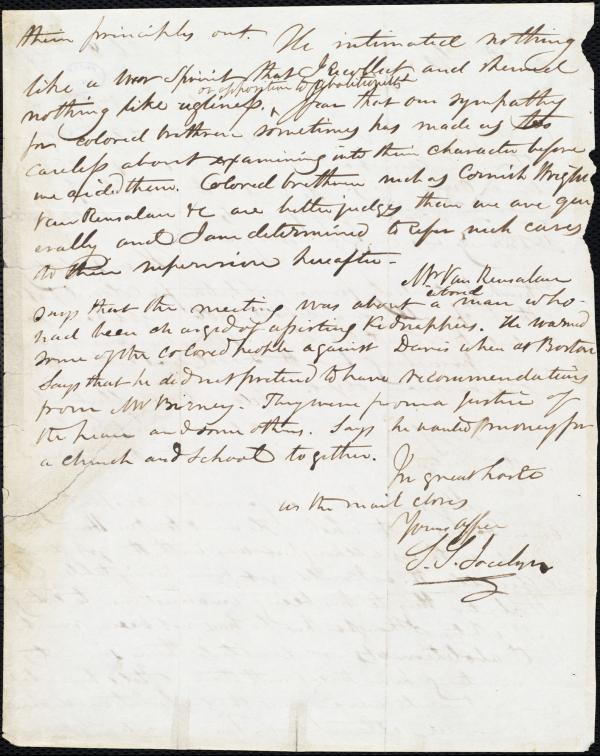 their principles out. He intimated nothing
like a war Spirit that I recollect and shewed
or opposition to abolitionists
nothing like ugliness. I fear that our sympathy
for colored brethren sometimes has made us
careless about examining into their character before
we aided them. Colored brethren such as Cornish Wright
Van Rensalaer &c are better judges than we are gen
erally and I am determined to refer such cases
to their supervision hereafter—
Mr Van Rensalaer
says that the meeting was about a man who
had been charged of assisting Kidnappers. He warned
some of the colored people against Davis when at Boston
Says that he did not pretend to have recommendations
from Mr Birney. They were from a Justice of
the peace and some others. Says he wanted money for
a church and School together.
In great haste
as the mail closes
Yours affec
S. S. Jocelyn